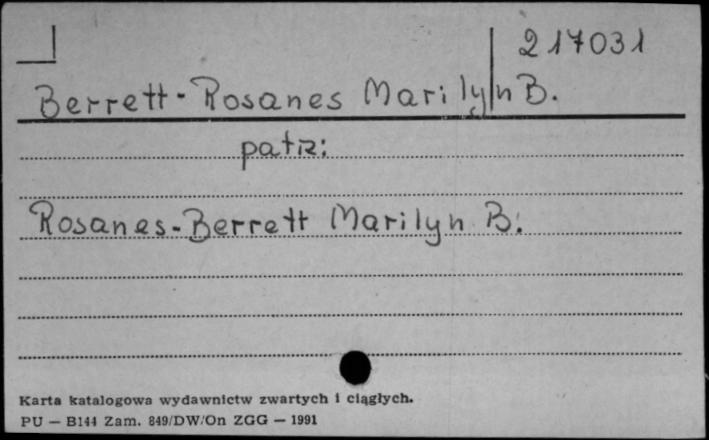 217031
Berrett-Rosanes Marilyn B.
patrz:
Rosanes-Berrett Marilyn B.
Karta katalogowa wydawnictw zwartych i ciągłych.
PU — B144 Zam. 849/DW/On ZGG — 1991